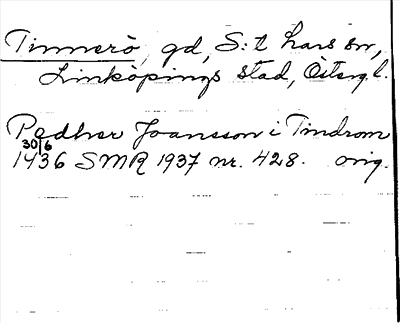 Tinnerö, gd, S:t Lars sn,
Linköpings stad, Östergl.
Pedher Joansson i Tindrom
30/6
1436 SMR 1937 nr. 428. orig.